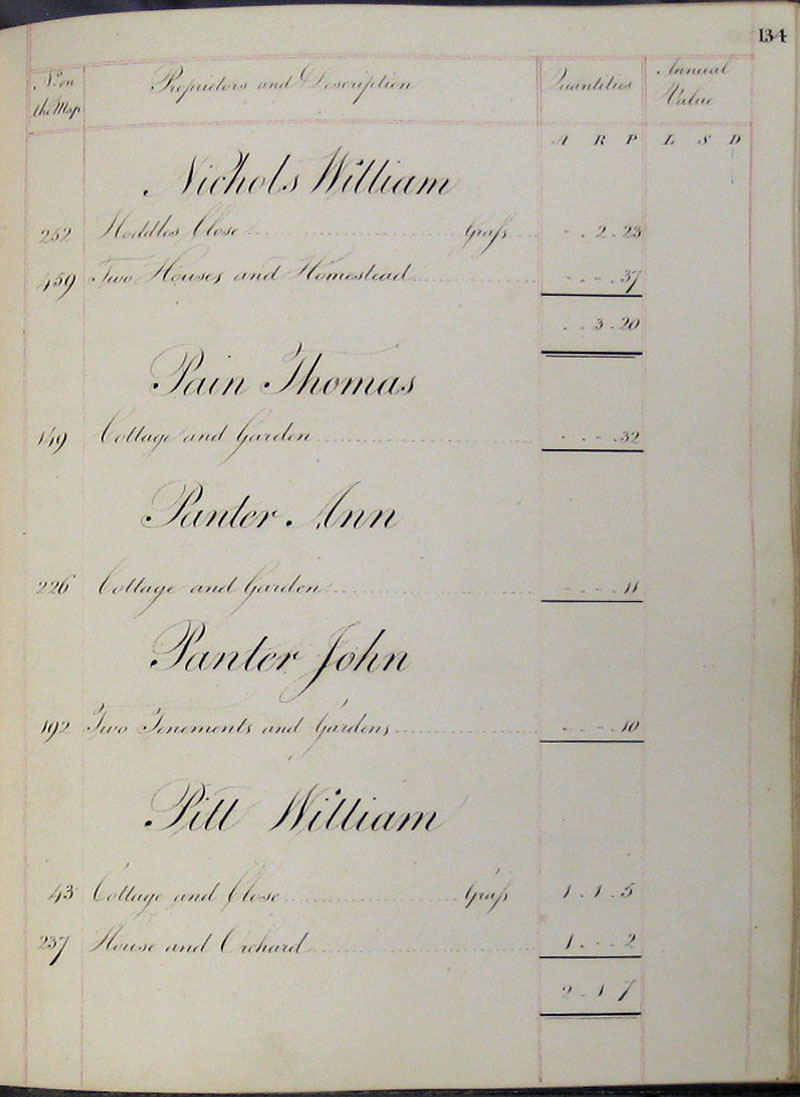 134
No on the Map Proprietors and Description Quantities Annual Value
A R P L S D
Nichols William
252 Hoddles Close Grass - . 2 . 23
459 Two Houses and Homestead - . - . 37
. . 3 . 20
Pain Thomas
149 Cottage and Garden - . - . 32
Panter Ann
226 Cottage and Garden - . - . 11
Panter John
192 Two Tenements and Gardens - . - . 10
Pitt William
43 Cottage and Close Grass 1 . 1 . 5
237 House and Orchard 1 . - . 2
2 . 1 7